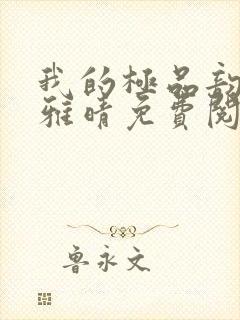 我的極品
雅晴免費閱
魯永文